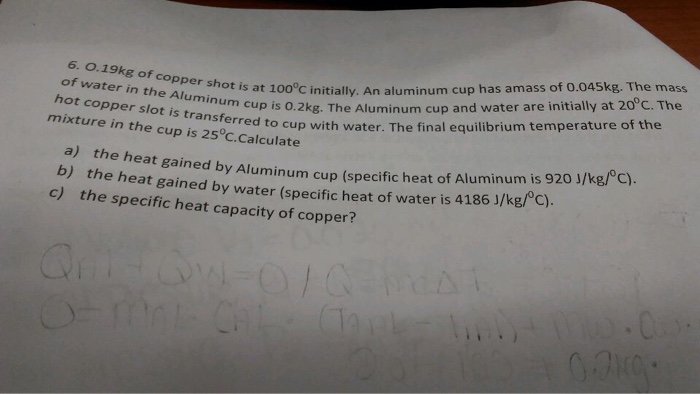 6. 0.19kg of copper shot is at 100⁰C initially. An aluminum cup has amass of 0.045kg. The mass
of water in the Aluminum cup is 0.2kg. The Aluminum cup and water are initially at 20⁰C. The
hot copper slot is transferred to cup with water. The final equilibrium temperature of the
mixture in the cup is 25⁰C.Calculate
a) the heat gained by Aluminum cup (specific heat of Aluminum is 920 J/kg/⁰C).
b) the heat gained by water (specific heat of water is 4186 J/kg/⁰C).
c) the specific heat capacity of copper?
0.2kg.